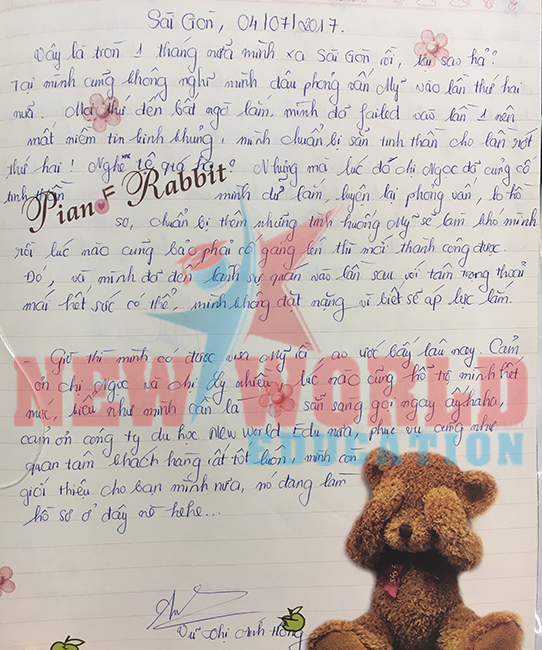 Sài Gòn, 04/07/2017.
Vậy là tròn 1 tháng nữa mình xa Sài Gòn rồi, tại sao hả?
Tại mình cũng không nghĩ mình đậu phỏng vấn Mỹ vào lần thứ hai
nữa. Mọi thứ đến bất ngờ lắm, mình đã failed vào lần 1 nên
mất niềm tin kinh khủng, mình chuẩn bị sẵn tinh thần cho lần rớt
thứ hai! Nghe tệ quá hả? Nhưng mà lúc đó chị Ngọc đã củng cố
tinh thần mình dữ lắm, luyện lại phỏng vấn, lo hồ
Piano Rabbit
sơ, chuẩn bị thêm những tình huống Mỹ sẽ làm khó mình
rồi lúc nào cũng bảo phải cố gắng lên thì mới thành công được.
Đó, và mình đã đến lãnh sự quán vào lần sau với tâm trạng thoải
mái hết sức có thể, mình không đặt nặng vì biết sẽ áp lực lắm.
Giờ thì mình có được visa Mỹ rồi, ao ước bấy lâu nay. Cảm
ơn chị Ngọc và chị Ly nhiều, lúc nào cũng hỗ trợ mình hết
mức, kiểu như mình cần là sẵn sàng gọi ngay ấy haha.
cảm ơn công ty du học New World Edu nữa, phục vụ cũng như
quan tâm khách hàng rất tốt luôn, mình còn
giới thiệu cho bạn mình nữa, nó đang làm
hồ sơ ở đây nè hehe...
NEW WORLD
EDUCATION
Vũ Thị Ánh Hồng